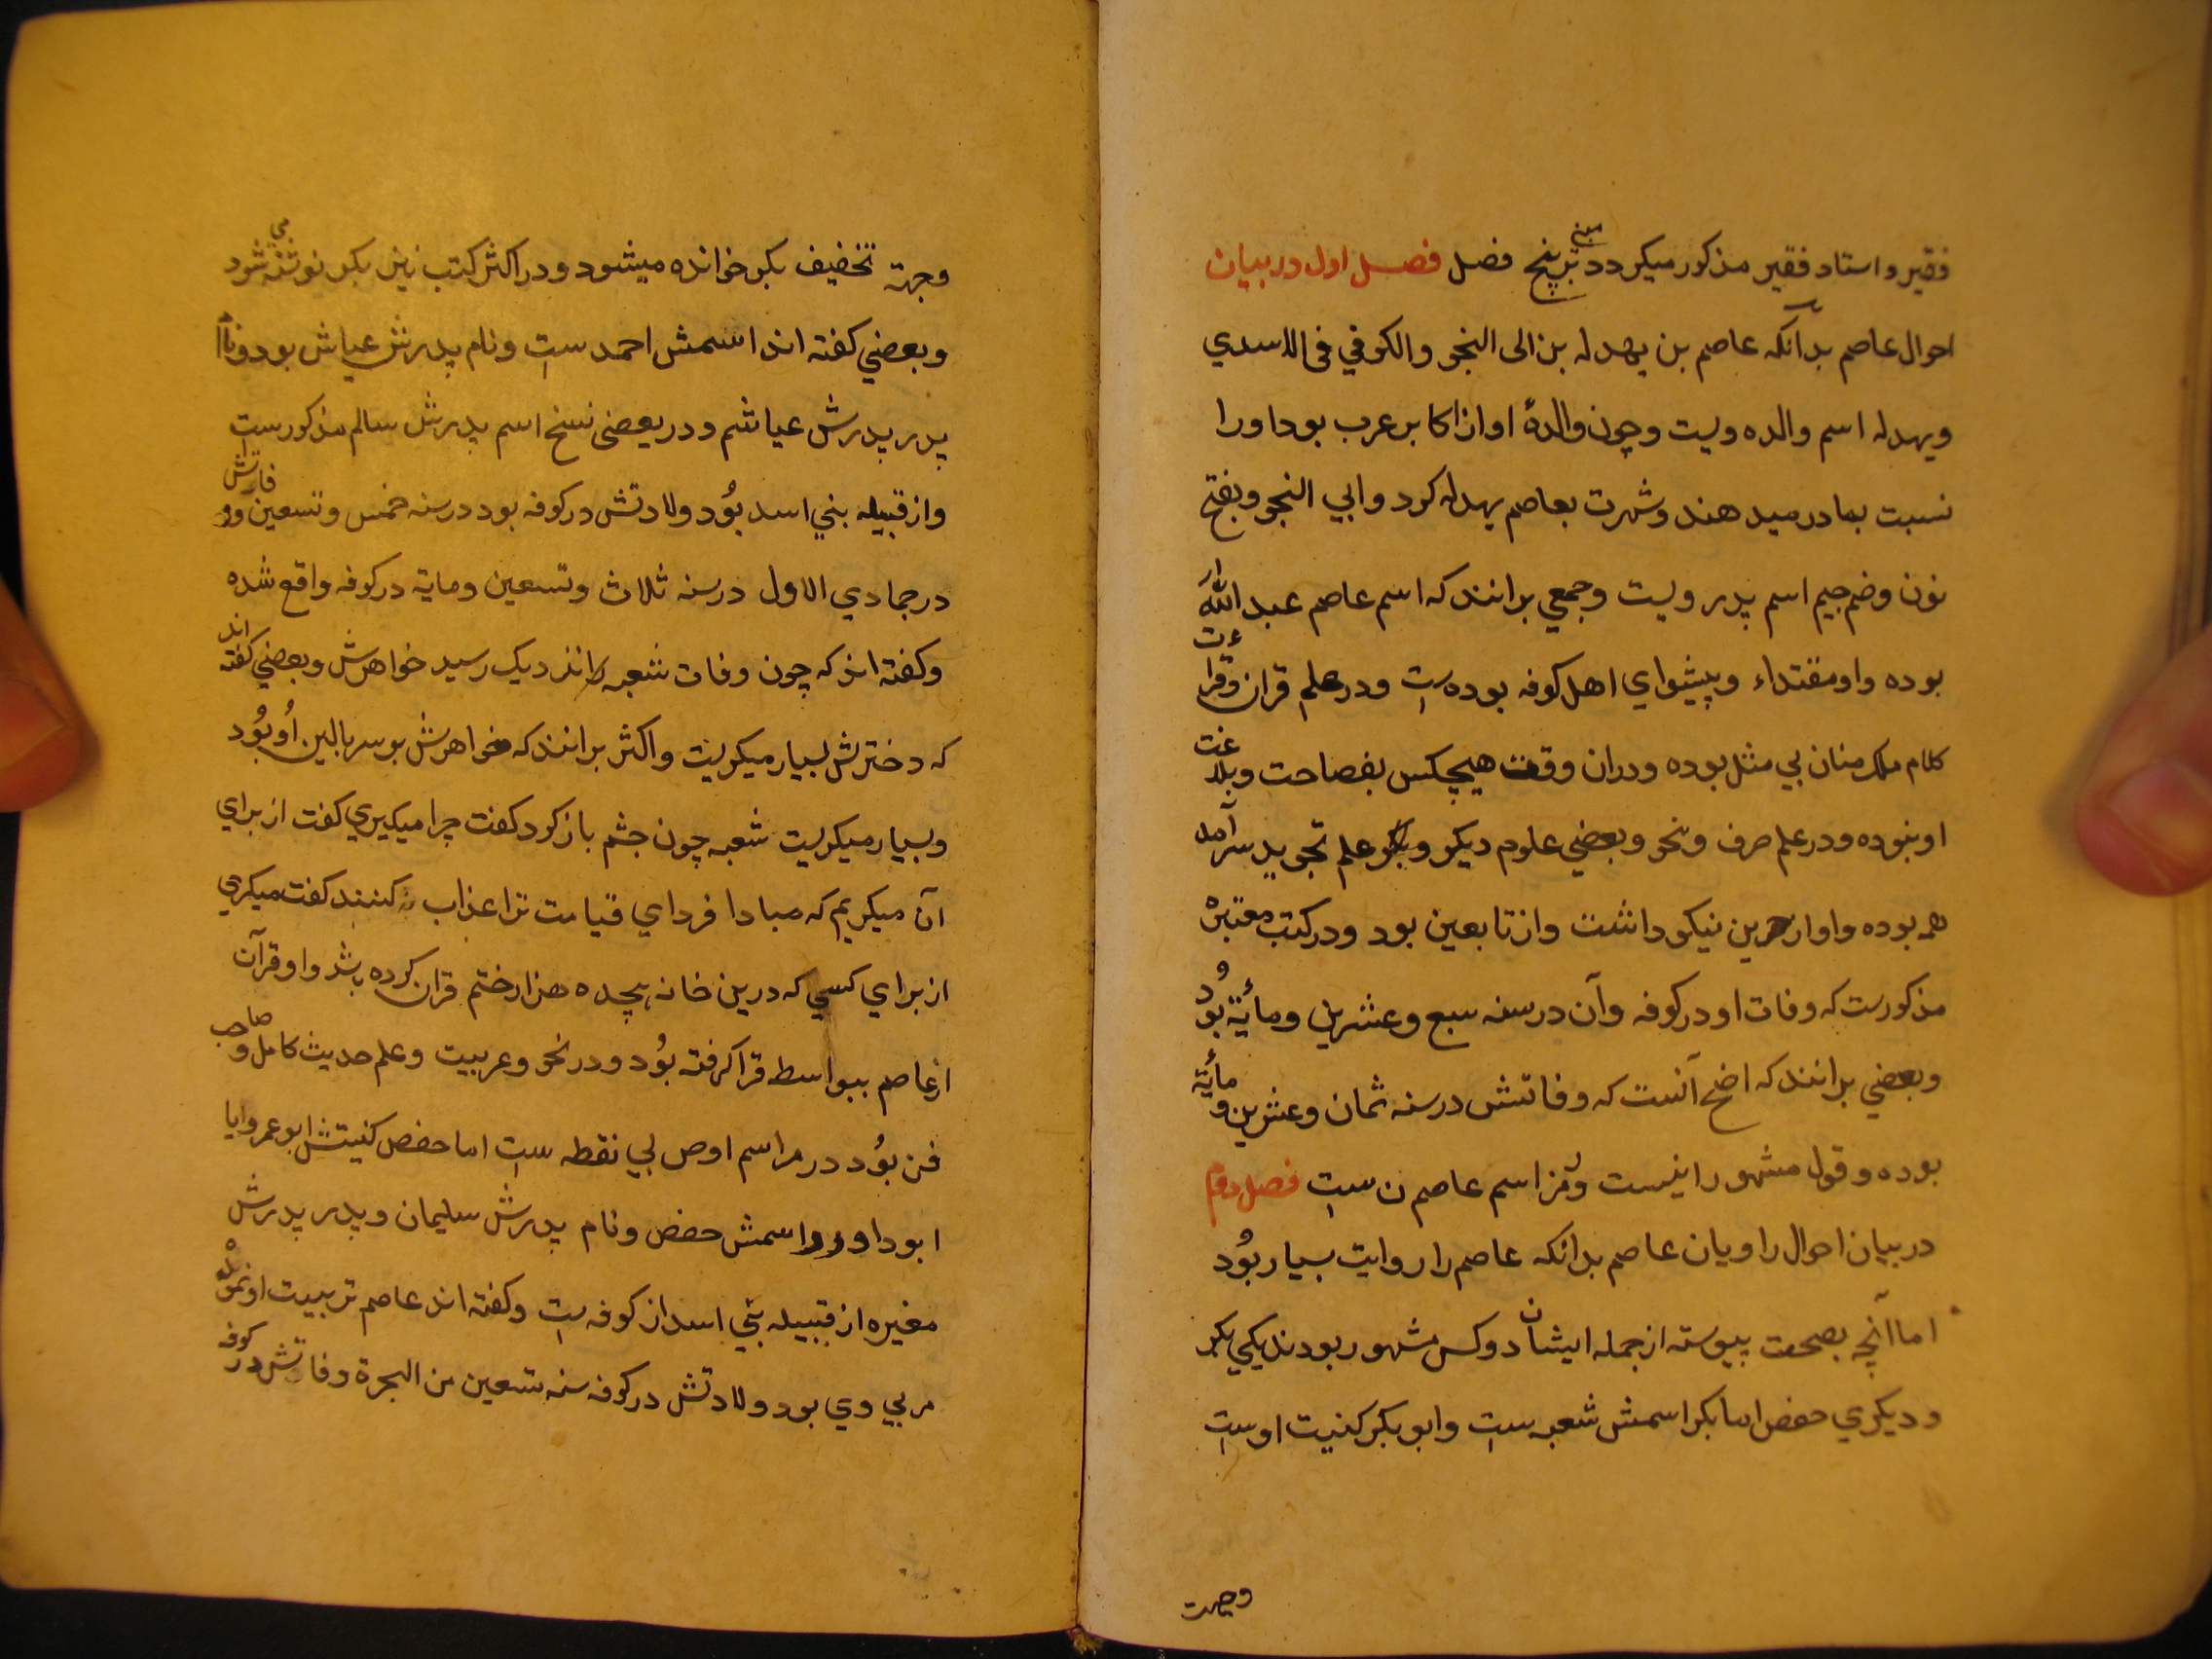 فقیر و استاد فقیر مذکور میکردد مبنی بر پنج فصل فصل اول در بیان
احوال عاصم بدآنکه عاصم بن بهدله بن الی النجو والکوفي فی الاسدي
وبهدله اسم والده ویست وچون والدهٔ او از اکابر عرب بود اورا
نسبت بمادر میدهند وشهرت بعاصم بهدله کرد وابي النجو وبفتح
نون وضم جیم اسم پدر ویست وجمعي برانند که اسم عاصم عبد الله
بوده واو مقتداء وپیشواي اهل کوفه بوده ست ودر علم قران وقراءت
کلام ملک منان بي مثل بوده ودران وقت هیچکس بفصاحت وبلاغت
او نبوده ودر علم صرف ونحو وبعضي علوم دیکر وبکو علم تجوید سرآمد
همه بوده واواز حزین نیکو داشت واز تابعین بود ودر کتب معتبره
مذکورست که وفات او در کوفه وآن در سنه سبع وعشرین ومأیة بُود و
وبعضي برانند که اصح آنست که وفاتش در سنه ثمان وعشرین ومأیة
بوده وقول مشهور اینست ورمز اسم عاصم ن ست فصل دوم
در بیان احوال راویان عاصم بدانکه عاصم را روایت بسیار بُود
اما آنچه بصحت پیوسته از جمله ایشان دوکس مشهور بودند یکي بکر
ودیکري حفص اما بکر اسمش شعبه ست وابو بکر کنیت اوست
وجهت
وجهة تخفیف بکر خوانده میشود ودر اکثر کتب نیز بکر نوشته می شود
وبعضي کفته اند اسمش احمد ست ونام پدرش عیاش بود ونام
پدر پدرش عیاشم ودر بعضی نسخ اسم پدرش سالم مذکورست
واز قبیله بني اسد بُود ولادتش در کوفه بود در سنه خمس وتسعین ووفاتش
در جمادي الاول در سنه ثلاث وتسعین ومایة در کوفه واقع شده
وکفته اند که چون وفات شعبه را نزدیک رسید خواهرش وبعضي کفته اند
که دخترش بسیار میکریت واکثر برانند که خواهرش بر سر بالین اُو بُود
وبسیار میکریت شعبه چون چشم باز کرد کفت چرا میکیري کفت از براي
آن میکریم که مبادا فرداي قیامت ترا عذاب کنند کفت میکري
از براي کسي که درین خانه هیجده هزار ختم قران کرده باشد واو قرآن
از عاصم بیواسطه فرا کرفته بُود ودر نحو وعربیت وعلم حدیث کامل وصاحب
فن بُود در مر اسم او ص بي نقطه ست اما حفص کنیتش ابو عمر ویا
ابو داود واسمش حفص ونام پدرش سلیمان وپدر پدرش
مغیره از قبیله بني اسد از کوفه ست وکفته اند عاصم تربیت او نموده
مربي وي بود ولادتش در کوفه سنه تسعین من الهجرة وفاتش در کوفه